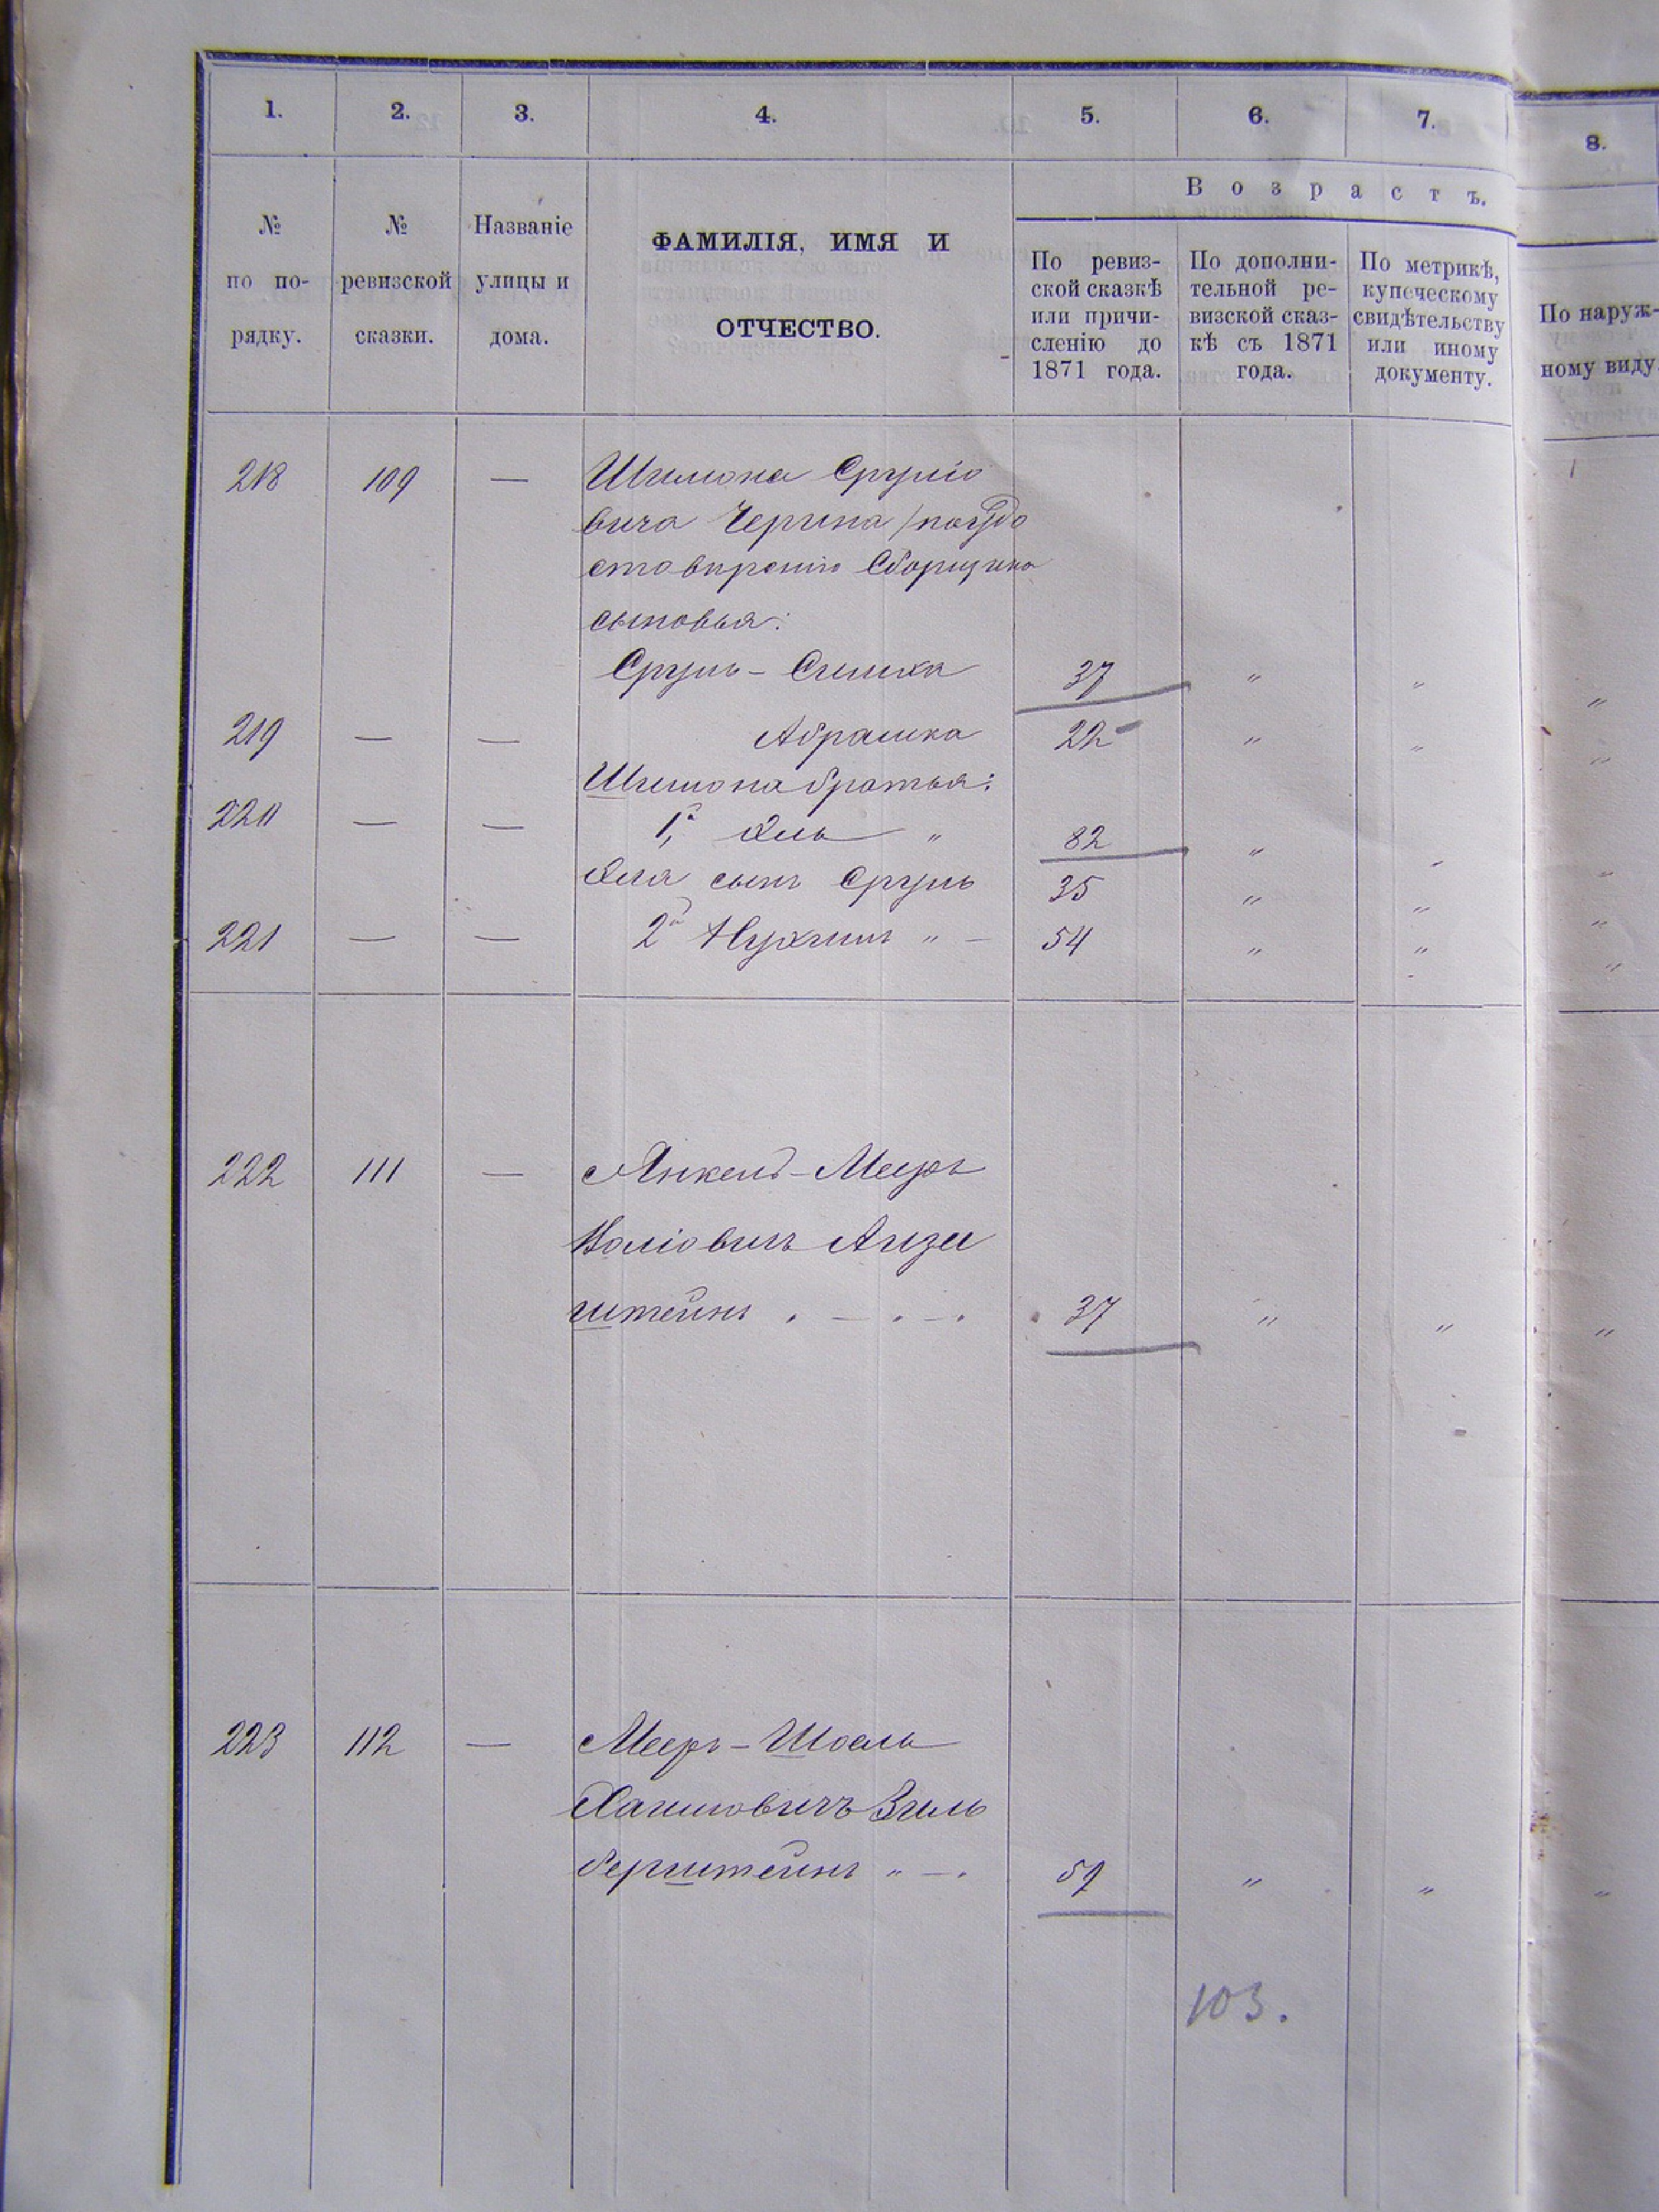 1. 2. 3. 4. 5. 6. 7. 8.
Возрастъ.
№ по по-рядку.
№ ревизской сказки.
Названіе улицы и дома.
ФАМИЛІЯ, ИМЯ И
ОТЧЕСТВО.
По ревиз-
ской сказкѣ
или причи-
сленію до
1871 года.
По дополни-
тельной ре-
визской сказ-
кѣ съ 1871
года.
По метрикѣ,
купеческому
свидѣтельству
или иному
документу.
По наруж-
ному виду
218 109 — Шимона Сруліо
вича Черина /по удо
стовѣренію Сборщика
сыновья:
Сруль - Симха 37 " " "
219 — — Абрамка 22 " " "
Шимона братья:
220 — — 1й Эль " 82 " " "
Эля сынъ Сруль 35 " " "
221 — — 2й Нухимъ " — 54 " " "
222 111 — Янкель - Мееръ
Айзен
штейнъ . — . — . 37 " " "
223 112 — Мееръ - Шоель
Хаимовичъ Зиль
берштейнъ " — . 57 " " "
103.